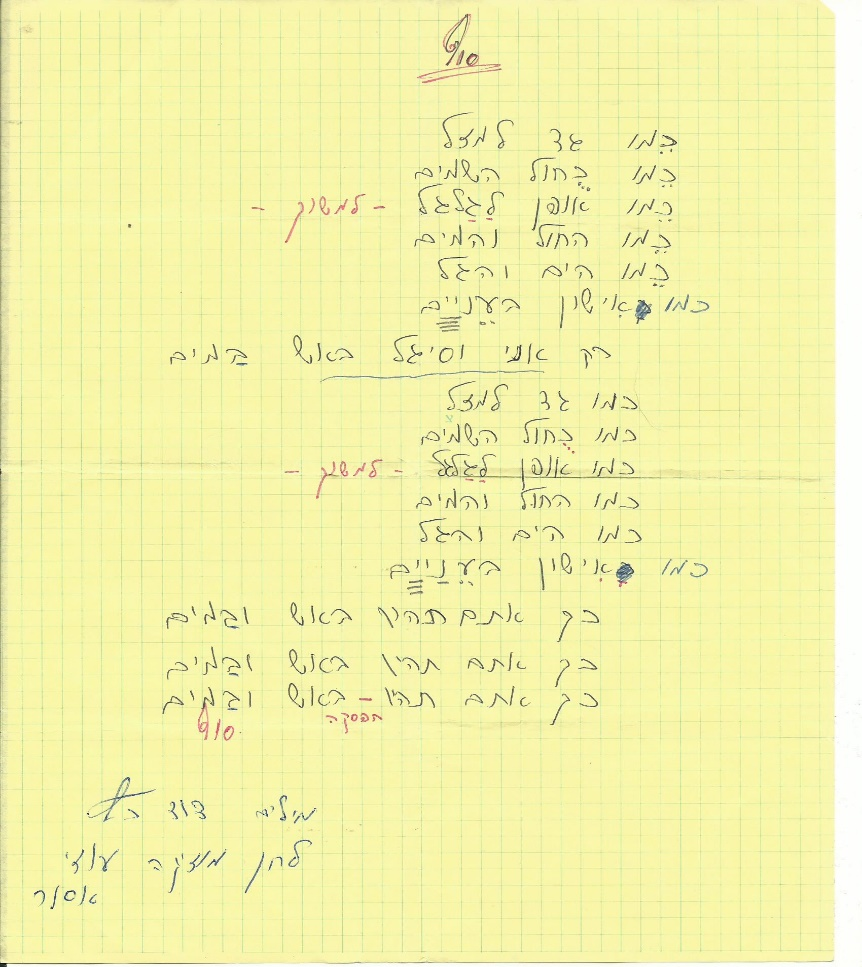 סוף
כמו גד למזל
כמו כחול השמים
כמו אופן לגלגל - למשוך -
כמו החול והמים
כמו הים והגל
כמו אישון העניים
רק אני וסיגל באש במים
כמו גד למזל
כמו כחול השמים
כמו אופן לגלגל - למשוך -
כמו החול והמים
כמו הים והגל
כמו אישון העניים
כך אתם תהיו באש ובמים
כך אתם תהיו באש ובמים
כך אתם תהיו - באש ובמים
הפסקה
סוף.
מילים דוד
לחן מוזיקה עוזי
אסנר